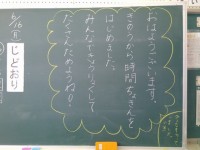 おはようございます。
きのうから時間ちょきんを
はじめました。
みんなできょうりょくして
たくさんためようね!
6/16
(月)
じどおり